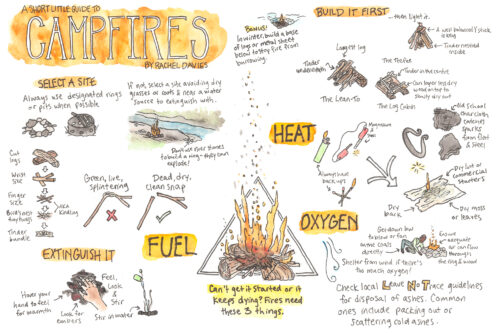 A SHORT LITTLE GUIDE TO
CAMPFIRES
BY RACHEL DAVIES
SELECT A SITE
Always use designated rings
or pits when possible.
If not, select a site avoiding dry
grasses or roots & near a water
source to extinguish with.
Don't use river stones
to build a ring - they can
explode!
Cut
logs
Wrist
size
Finger
size
Bird's nest
tiny twigs
AKA
Kindling
Tinder
bundle
Green, live,
splintering
Dead, dry,
clean snap
EXTINGUISH IT
Hover your
hand to feel
for warmth
Feel,
Look
& Stir
Look for
embers
Stir in water
FUEL
Bonus:
In winter, build a base
of logs or metal sheet
below to stop fire from
burrowing.
BUILD IT FIRST
...then light it.
Largest log
Tinder underneath
The Lean-To
The TeePee
Tinder in the centre
Can layer less dry
wood on top to
slowly dry out
The Log Cabin
Tinder nested
inside
HEAT
Always have
back ups
Old school
char cloth
catches
sparks
from flint
& steel
Dry lint or
commercial
starters
Dry
bark
Dry moss
or leaves
OXYGEN
Get down low
to blow or fan
some coals
directly
Ensure
adequate
air can flow
through
the ring & wood
Shelter from wind if there's
too much oxygen!
Can't get it started or it
keeps dying? Fires need
these 3 things.
Check local Leave No Trace guidelines
for disposal of ashes. Common
ones include packing out or
scattering cold ashes.